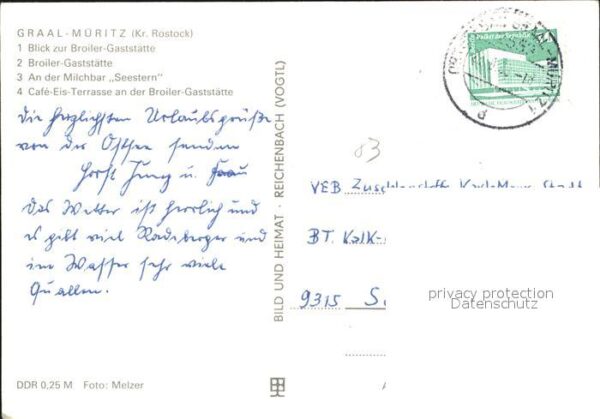 GRAAL-MÜRITZ (Kr. Rostock)
1 Blick zur Broiler-Gaststätte
2 Broiler-Gaststätte
3 An der Milchbar „Seestern"
4 Café-Eis-Terrasse an der Broiler-Gaststätte
Die herzlichsten Urlaubsgrüße
von der Ostsee senden
Horst Jung u. Frau
Das Wetter ist herrlich und
es gibt viel Radeberger und
im Wasser sehr viele
Quallen.
DDR 0,25 M Foto: Melzer
BILD UND HEIMAT · REICHENBACH (VOGTL)
Palast der Republik
GRAAL-MÜRITZ 1
83
VEB Zuschlagstoffe Karl-Marx-Stadt
BT. Kalk-
9315
privacy protection
Datenschutz